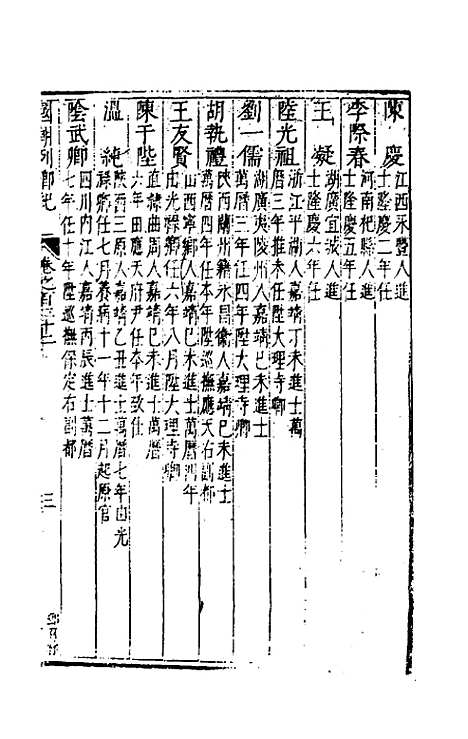 陳慶
江西永豐人進
士隆慶二年任
李際春
河南杞縣人進
士隆慶五年任
王凝
湖廣宜城人進
士隆慶六年任
陸光祖
浙江平湖人嘉靖丁未進士萬
曆三年推未任陞大理寺卿
劉一儒
湖廣夷陵州人嘉靖己未進士
萬曆三年任四年陞大理寺卿
胡執禮
陝西蘭州籍永昌衛人嘉靖己未進士
萬曆四年任本年陞巡撫應天右副都
王友賢
山西寧鄉人嘉靖己未進士萬曆四年
由光祿卿任六年八月陞大理寺卿
陳于陛
直隸曲周人嘉靖己未進士萬曆
六年由應天府尹任本年致仕
溫純
陝西三原人嘉靖乙丑進士萬曆七年由光
祿卿任七月養病十一年十二月起原官
陰武卿
四川內江人嘉靖丙辰進士萬曆
七年任十年陞巡撫保定右副都
國朝列卿紀
卷之百三十二
三